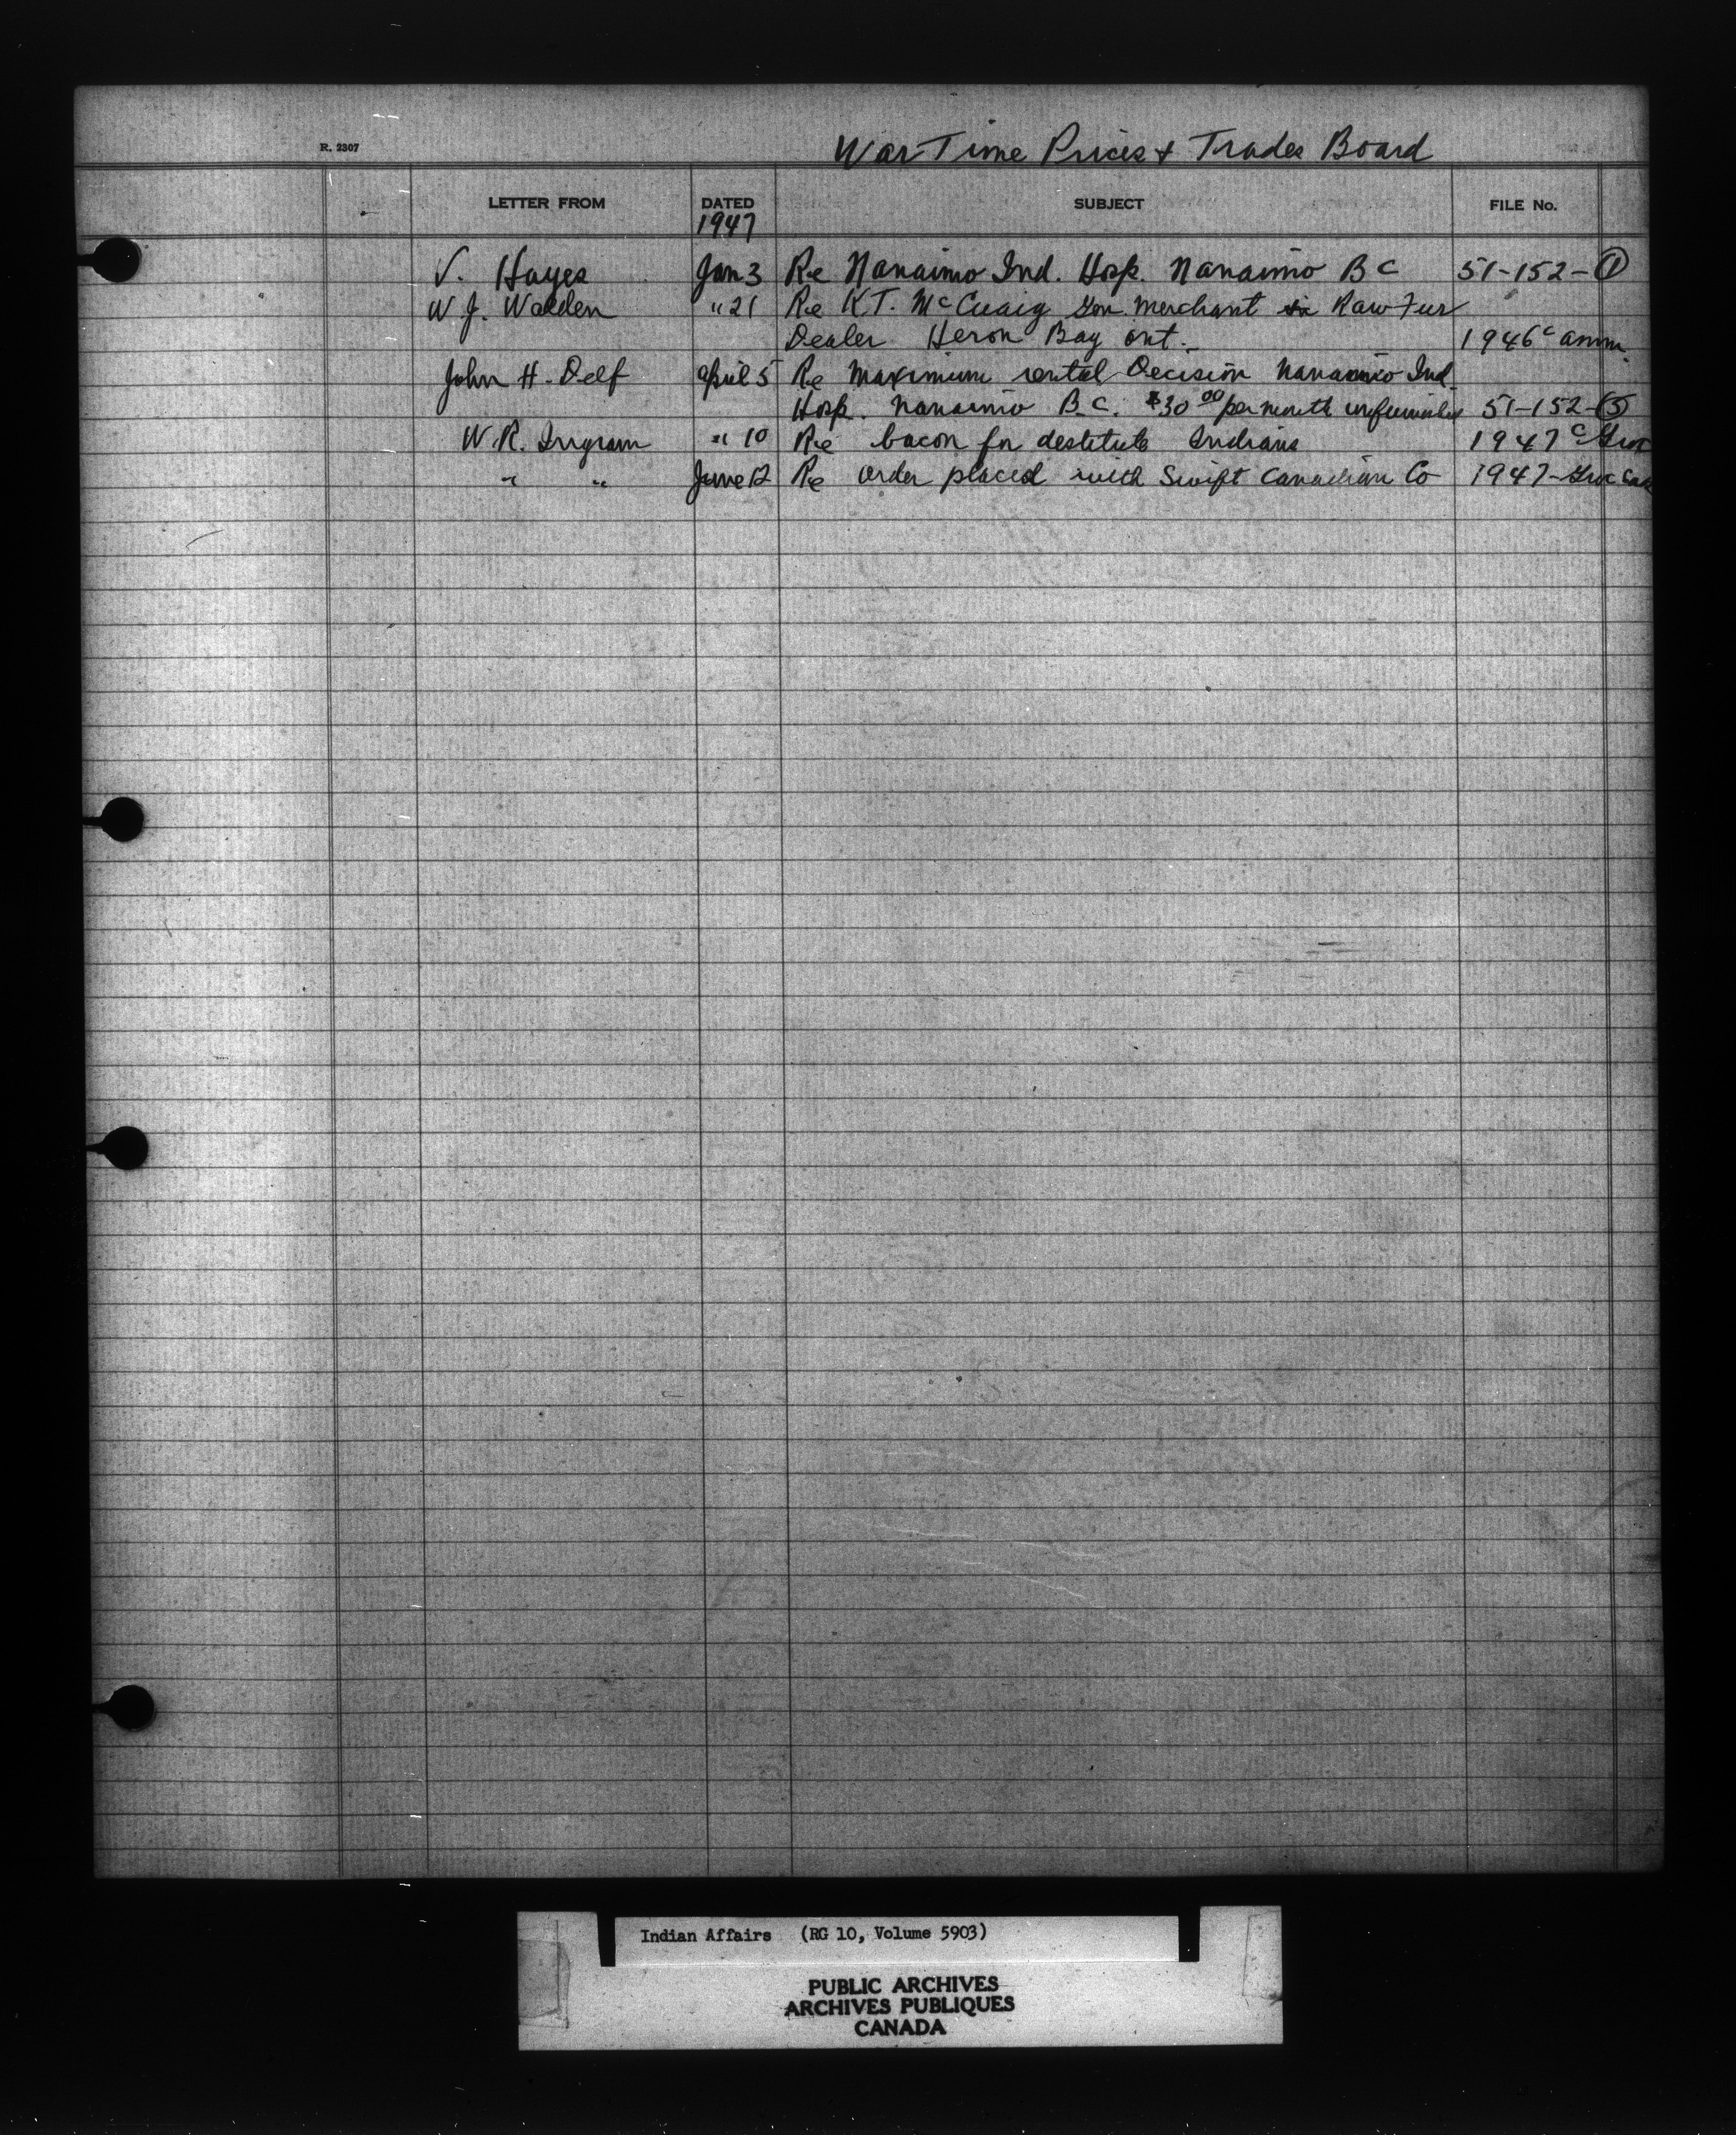 R. 2307
War Time Prices & Trades Board
LETTER FROM DATED SUBJECT FILE No.
1947
V. Hayes Jan 3 Re Nanaimo Ind. Hosp. Nanaimo B C 51-152-1
W. J. Walden " 21 Re K.T. McCuaig Gen. Merchant Raw Fur
Dealer Heron Bay Ont. 1946 c amm.
John H. Delf April 5 Re Maximum rental Decision Nanaimo Ind.
Hosp. Nanaimo B.C. $30 00 per month unfurnished 51-152-5
W. R. Ingram " 10 Re bacon for destitute Indians 1947 c Groc
" " June 12 Re order placed with Swift Canadian Co 1947-Groc
Indian Affairs (RG 10, Volume 5903)
PUBLIC ARCHIVES
ARCHIVES PUBLIQUES
CANADA